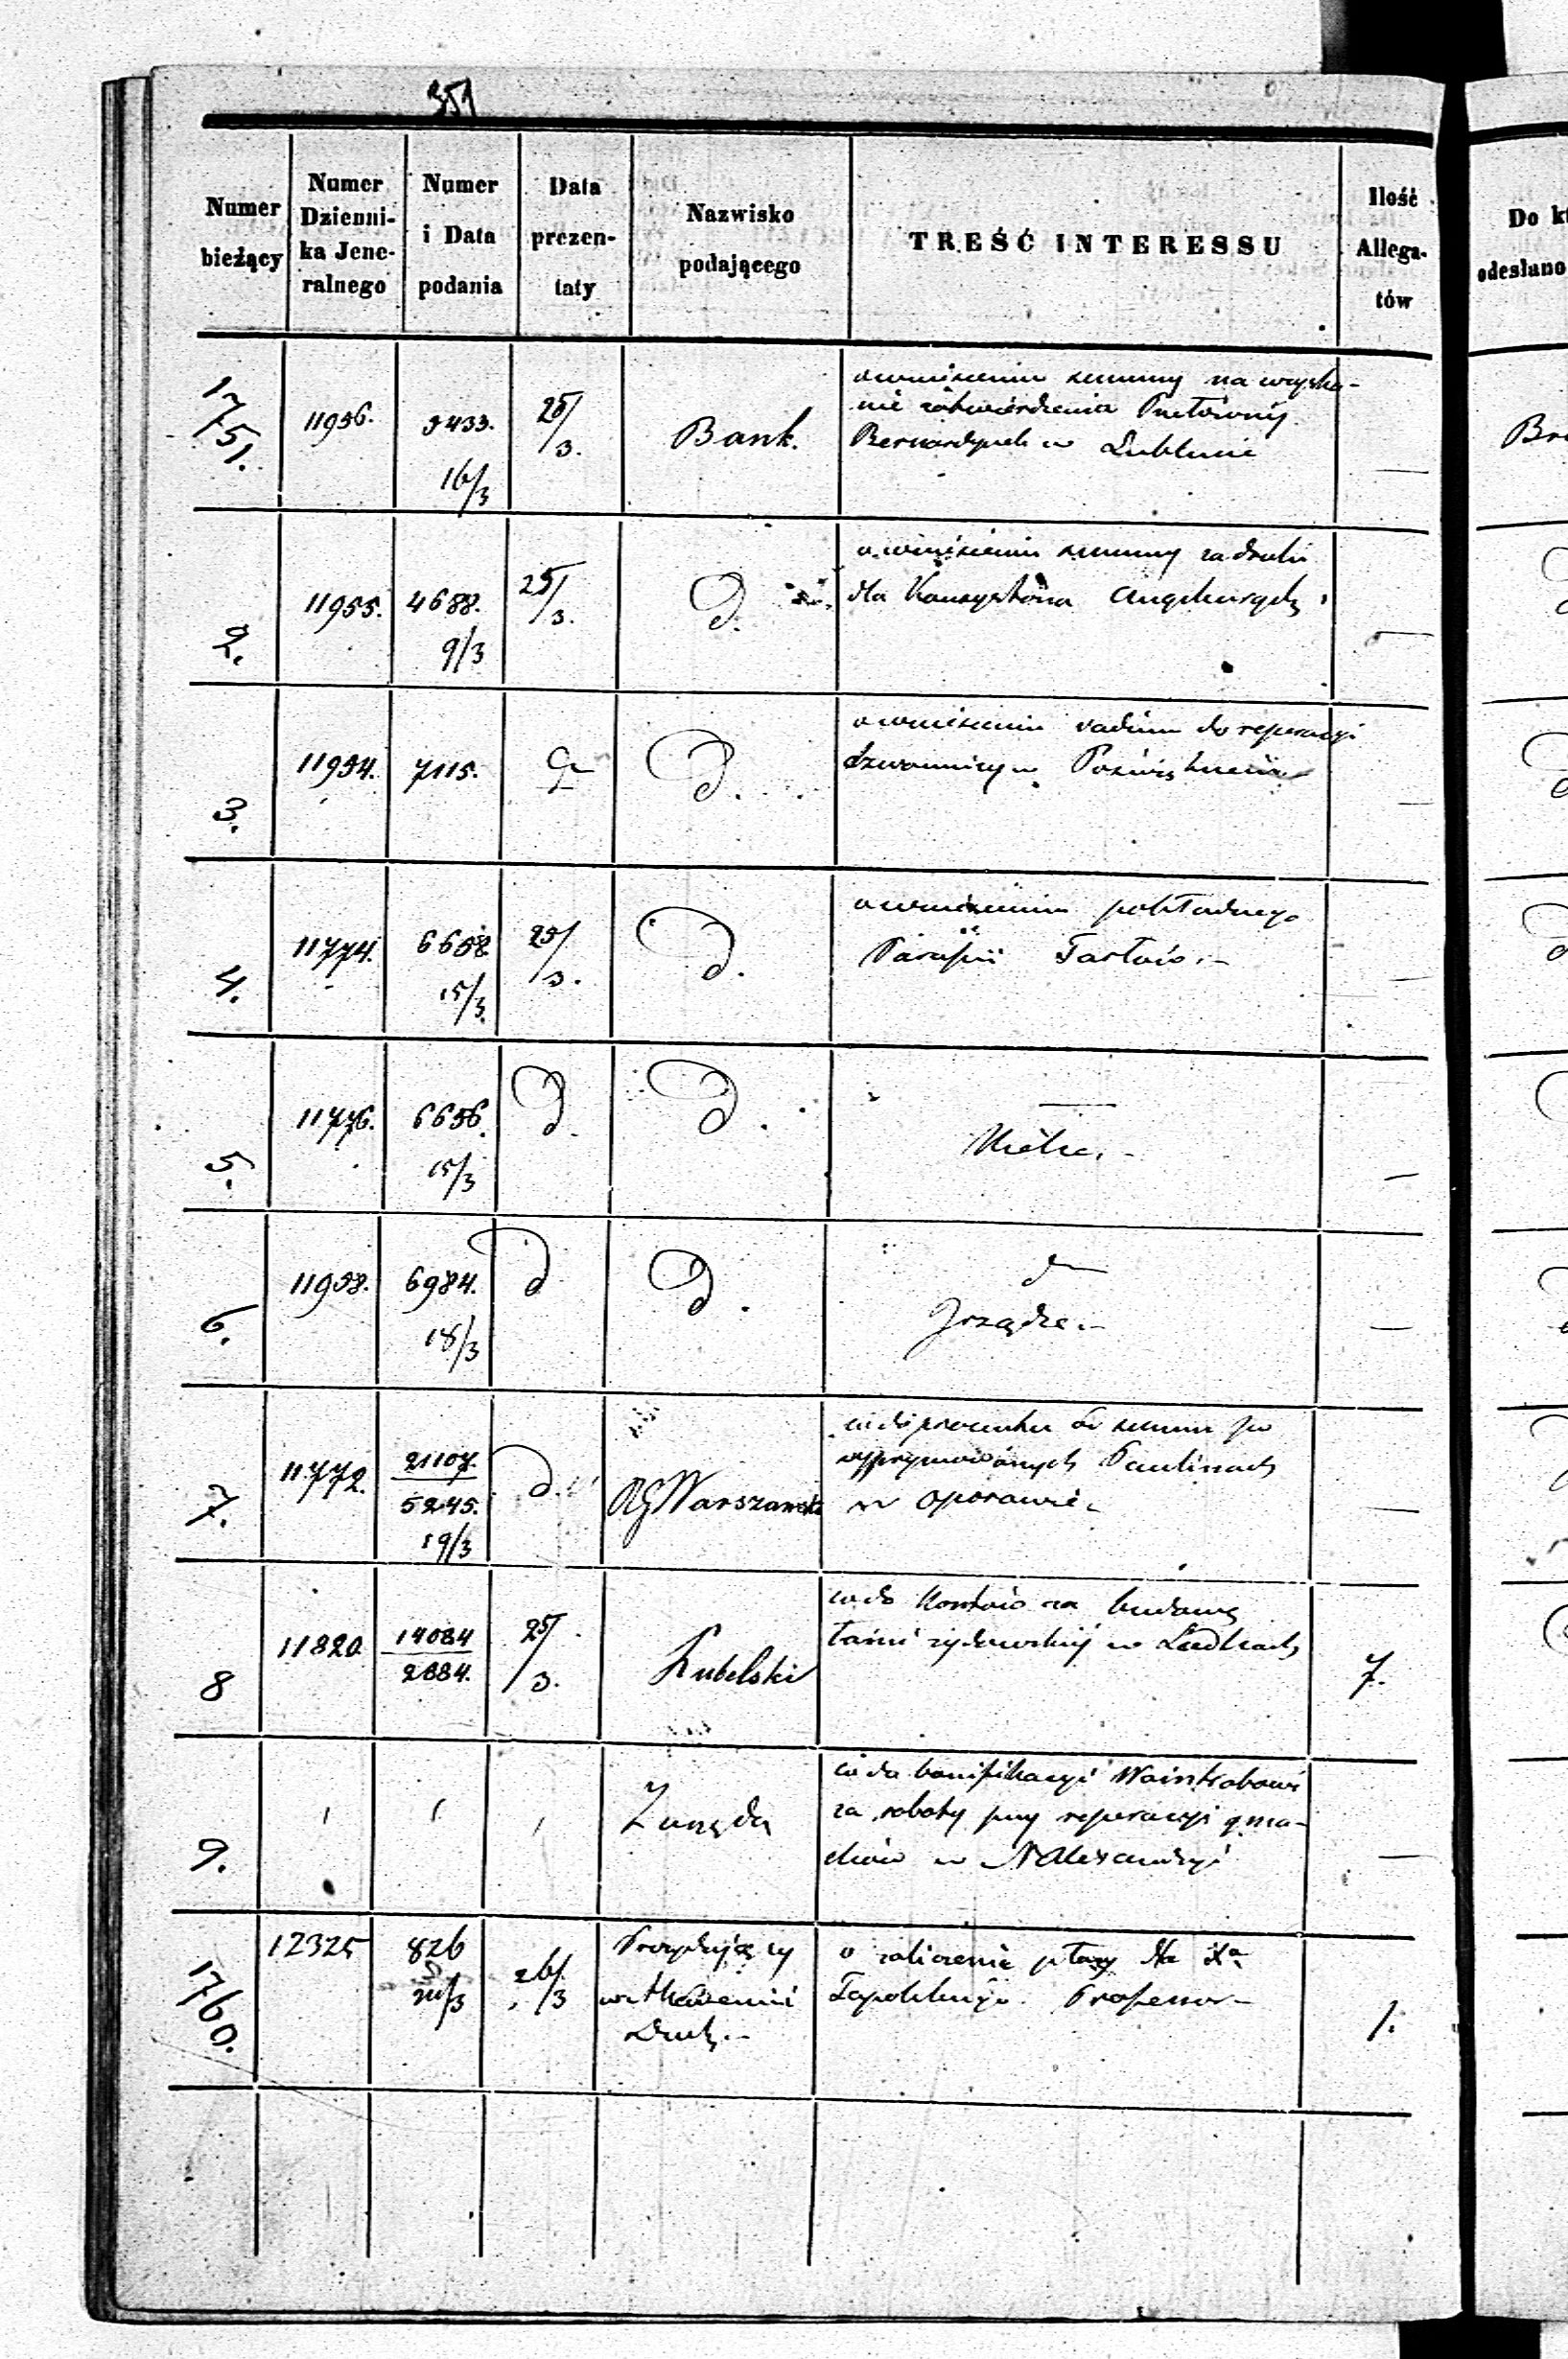 351
Numer bieżący
Numer Dzienni-ka Jene-ralnego
Numer i Data podania
Data prezen-taty
Nazwisko podającego
TREŚĆ INTERESSU
Ilość Allega-tów
Do
odesłano
1751.
11956.
5433.
16/3
25/3.
Bank.
o wniesieniu summy na wyska-
nie zatwierdzenia
Bernardynek w Lublinie
—
2.
11955.
4688.
9/3
25/3.
d.
o wniesieniu summy za druki
dla Konsystorza Augsburgsk.
—
3.
11954.
7115.
d.
o wniesieniu vadium do reperacyi
dzwonnicy w
—
4.
11774.
6658
15/3.
25/3.
d.
o wniesieniu pokładnego
Parafii Tarłów.–
—
5.
11776.
6656.
15/3
d.
d.
—
Kielce.–
—
6.
11958.
6984.
18/3
d
d.
d
Irządze.–
—
7.
11772.
21107.
5245.
19/3
d.
RG Warszawski
co do procentu od summ po
Paulinach
w Oporowie.
—
8
11820
14084
2884.
25/3.
Lubelski
co do kosztów na budowę
łaźni żydowskiej w
7.
9.
Z urzędu
co do bonifikacyi Wainstobowi
za roboty przy reperacyi gma-
chów w N Alexandryi
—
1760.
12325
826
20/3
26/3
Prezydujący
w
Duch.–
o zaliczenie płacy dla Xa
Profesor–
1.